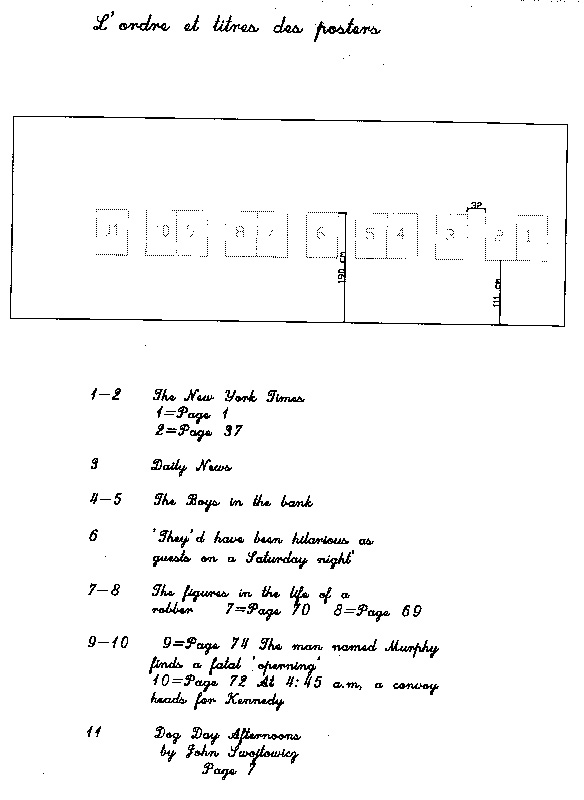 L'ordre et titres des posters
32
11 10 9 8 7 6 5 4 3 2 1
190 cm
111 cm
1-2 The New York Times
1=Page 1
2=Page 37
3 Daily News
4-5 The Boys in the bank
6 'They'd have been hilarious as
guests on a Saturday night'
7-8 The figures in the life of a
robber 7=Page 70 8=Page 69
9-10 9=Page 74 The man named Murphy
finds a fatal 'operning'
10=Page 72 At 4:45 a.m, a convoy
heads for Kennedy
11 Dog Day Afternoons
by John Swojtowicz
Page 7